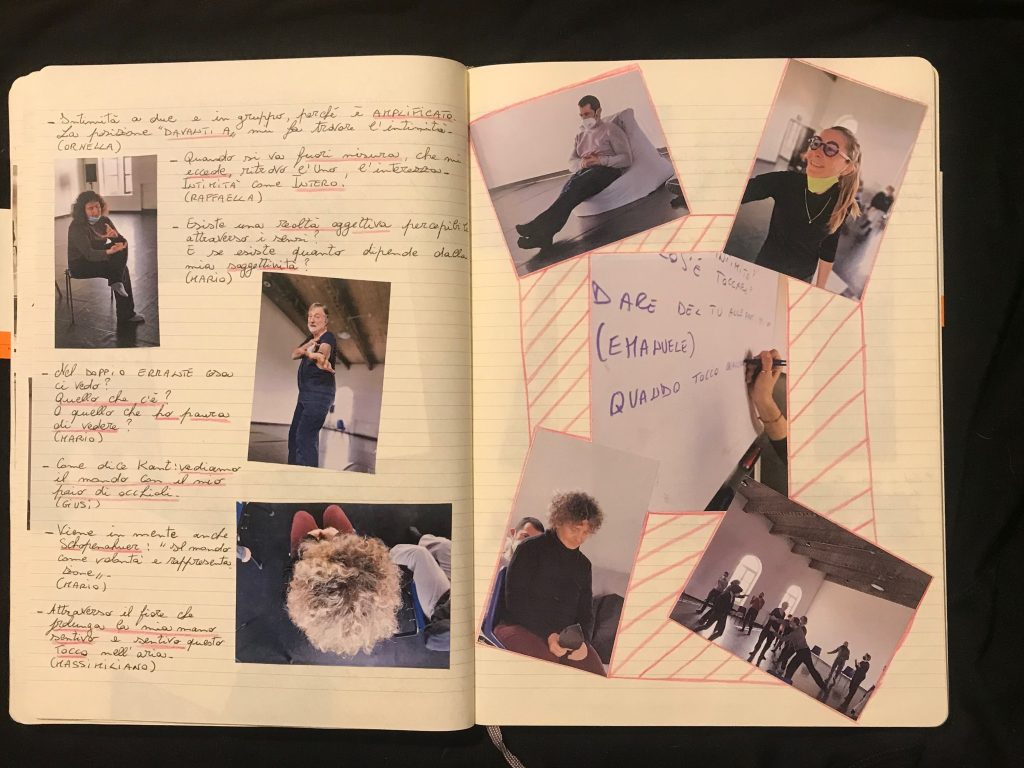 - Intimità a due e in gruppo, perché è AMPLIFICATO.
La posizione "DAVANTI A" mi fa trovare l'intimità -
(ORNELLA)
- Quando si va fuori misura, che mi
eccede, ritrovo l'Uno, l'interezza -
INTIMITÀ come INTERO.
(RAFFAELLA)
- Esiste una realtà oggettiva percepibile
attraverso i sensi?
E se esiste quanto dipende dalla
mia soggettività?
(MARIO)
- Nel DOPPIO ERRANTE cosa
ci vedo?
Quello che c'è?
O quello che ho paura
di vedere?
(MARIO)
- Come dice Kant: vediamo
il mondo con il mio
paio di occhiali.
(GIUSI)
- Viene in mente anche
Schopenahuer: "Il mondo
come volontà e rappresenta
zione" -
(MARIO)
- Attraverso il fiore che
prolunga la mia mano
sentivo e sentivo questo
TOCCO nell'aria -
(MASSIMILIANO)
COS'È INTIMITÀ?
È TOCCARE?
DARE DEL TU
(EMANUELE)
QUANDO TOCCO